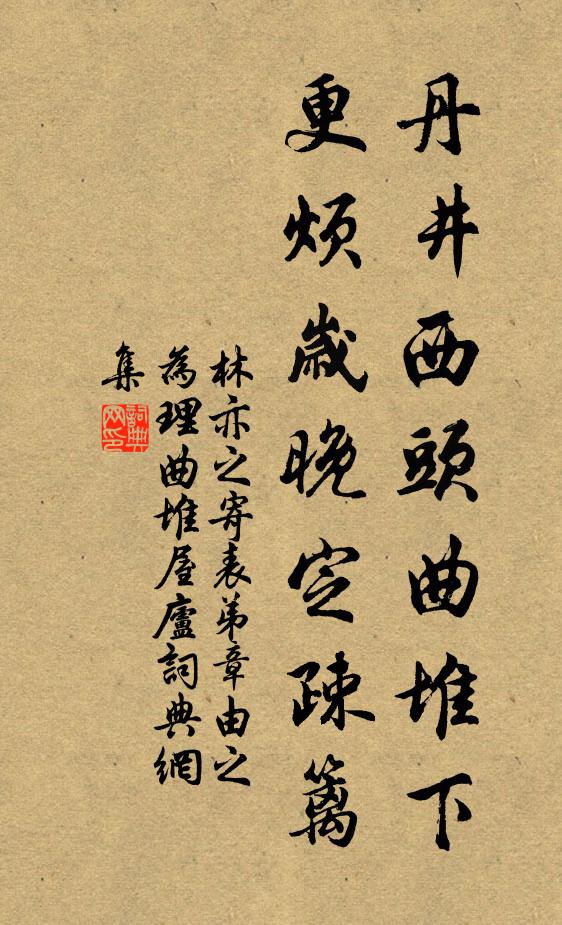 丹井西頭曲堆下
更煩歲晚定疎籬
林亦之寄表弟章由之
為理曲堆屋廬詞典網
集
詞典網印